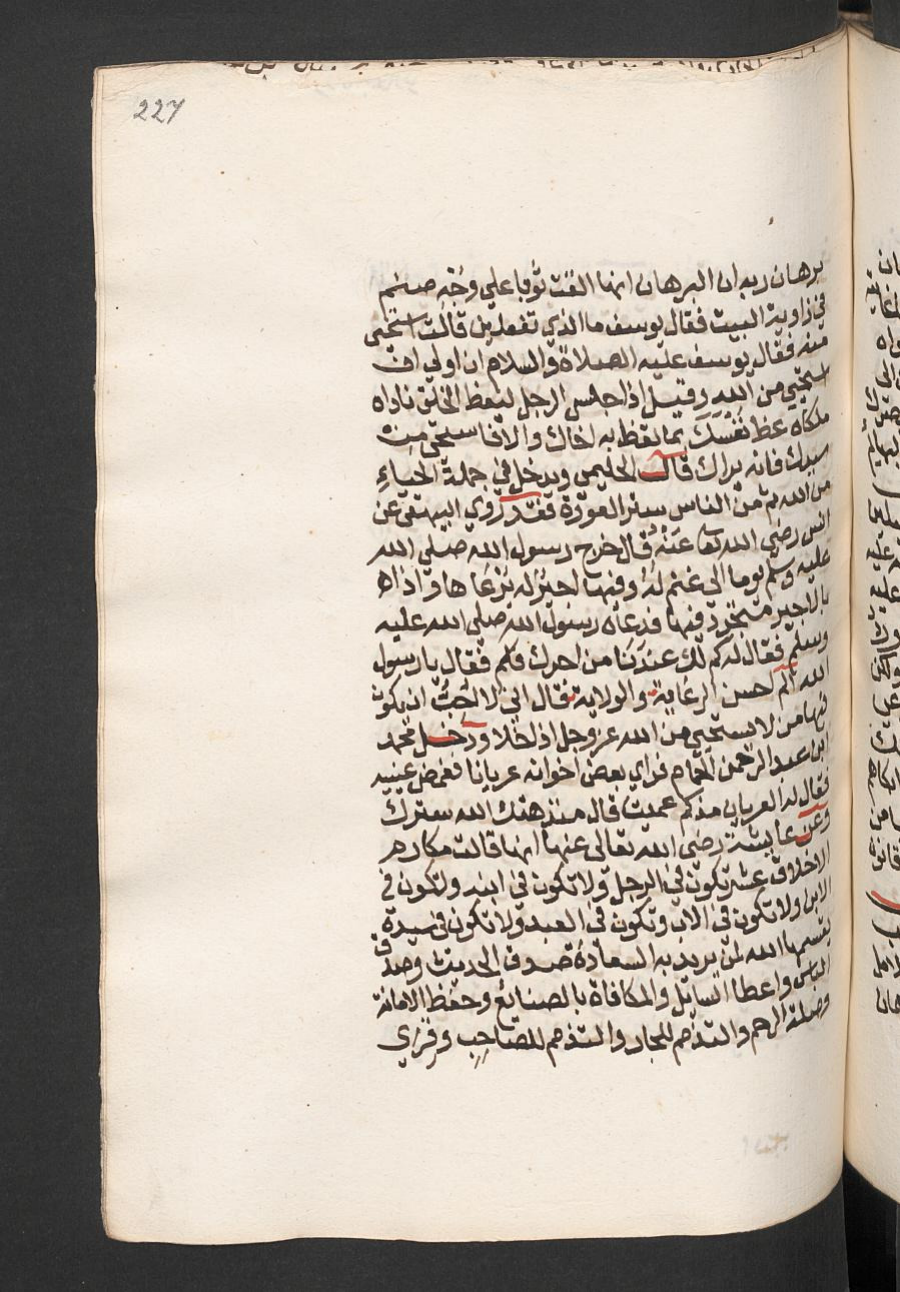 227
برهان ربه ان البرهان انها القت ثوبا علي وجه صنم
في زاوية البيت فقال يوسف ما الذي تفعلين قالت استحي
منه فقال يوسف عليه الصلاة والسلام انا اولي ان
استحيي من الله وقيل اذا جلس الرجل ليعظ الخلق ناداه
ملكاه عظ نفسك بما تعظ به اخاك والا فاستحي من
سيدك فانه يراك قال الحليمي ويدخل في جملة الحياء
من الله ثم من الناس ستر العورة فقد روي البيهقي عن
انس رضي الله تعا عنه قال خرج رسول الله صلي الله
عليه وسلم يوما الي غنم له وفيها اجير له يرعاها واذا
بالاجير متجرد فيها فدعاه رسول الله صلي الله عليه
وسلم فقال له كم لك عندنا من اجرك فقال يا رسول
الله الم احسن الرعاية والولاية فقال اني لا احب ان يكون
فيها من لا يستحيي من الله عز وجل اذا خلا ودخل محمد
ابن عبد الرحمن الحمام فراي بعض اخوانه عريانا فغمض عينيه
فقال له العريان مذكم عميت قال منذ هتك الله سترك
وعن عايشة رضي الله تعالي عنها انها قالت مكارم
الاخلاق عشر تكون في الرجل ولا تكون في ابنه وتكون في
الابن ولا تكون في الاب وتكون في العبد ولا تكون في سيده
يقسمها الله لمن يريد به السعادة صدق الحديث وصدق
الباس واعطا السايل والمكافاة بالصنايع وحفظ الامانة
وصلة الرحم والتذمم للجار والتذمم للصاحب وقري